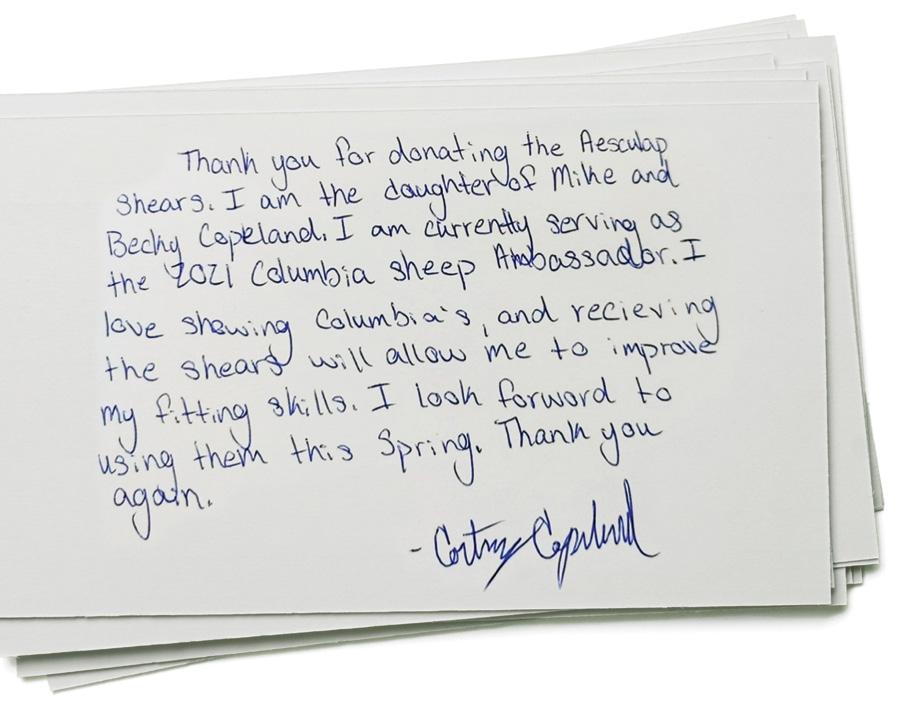 Thank you for donating the Aesculap
shears. I am the daughter of Mike and
Becky Copeland. I am currently serving as
the 2021 Columbia sheep Ambassador. I
love showing Columbia's, and recieving
the shears will allow me to improve
my fitting skills. I look forward to
using them this Spring. Thank you
again.
- Cortney Copeland